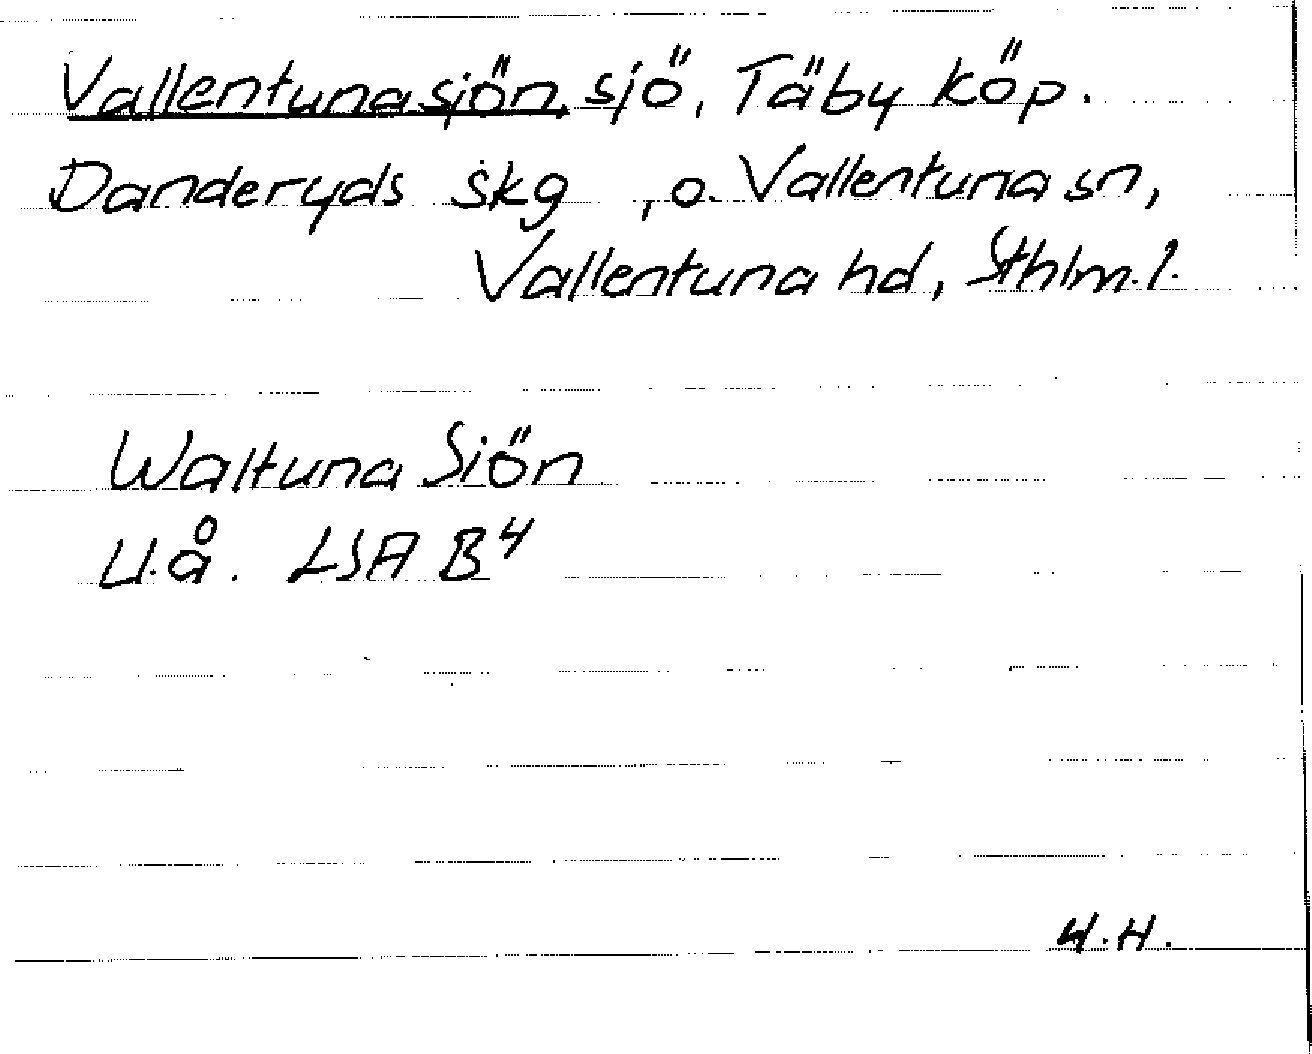 Vallentunasjön, sjö, Täby köp.
Danderyds skg , o. Vallentuna sn,
Vallentuna hd, Sthlm. l.
Waltuna Siön
U.å. LSA B4
H.